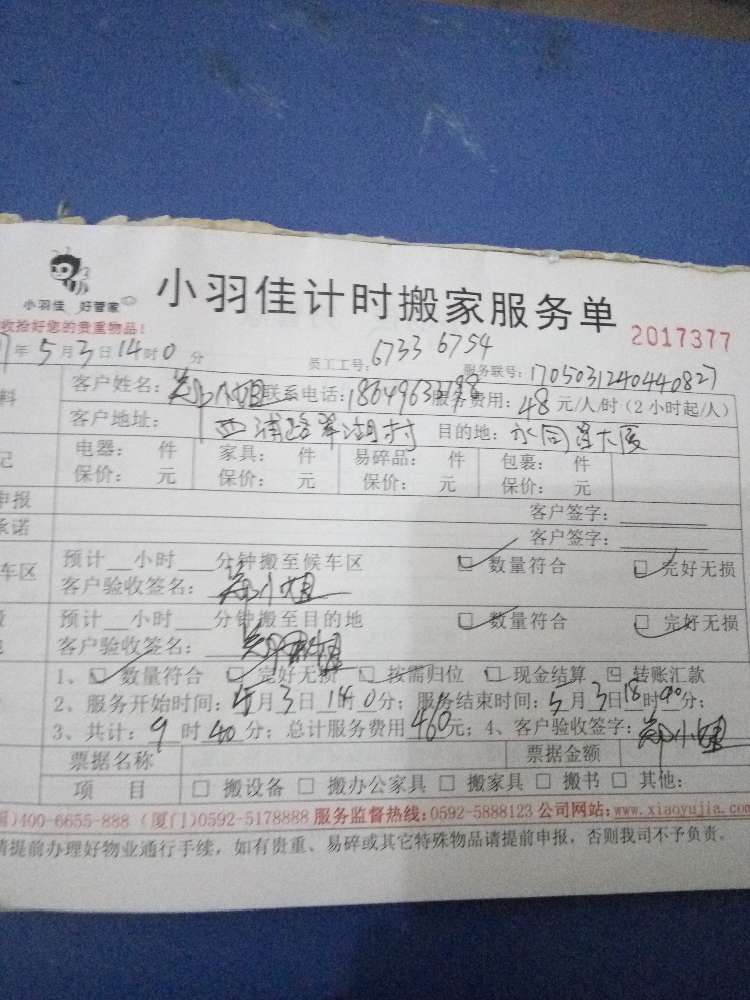 小羽佳 好管家
小羽佳计时搬家服务单 2017377
收拾好您的贵重物品!
年5月3日14时0分 员工工号:6733 6754 服务联号:1705031240440827
料 客户姓名:郑小姐 联系电话: 服务费用:48元/人/时(2小时起/人)
客户地址: 西浦路翠湖村 目的地:大厦
记 电器: 件 家具: 件 易碎品: 件 包裹: 件
保价: 元 保价: 元 保价: 元 保价: 元
申报 客户签字:
承诺 客户签字:
车区 预计__小时__分钟搬至候车区 数量符合 完好无损
客户验收签名:郑小姐
预计__小时__分钟搬至目的地 数量符合 完好无损
客户验收签名:郑小姐
1、数量符合 完好无损 按需归位 现金结算 转账汇款
2、服务开始时间:5月3日14时0分;服务结束时间:5月3日18时分;
3、共计:9时40分;总计服务费用460元;4、客户验收签字:郑小姐
票据名称 票据金额
项 目 搬设备 搬办公家具 搬家具 搬书 其他:
)400-6655-888 (厦门)0592-5178888 服务监督热线:0592-5888123 公司网站:www.xiaoyujia.com
请提前办理好物业通行手续,如有贵重、易碎或其它特殊物品请提前申报,否则我司不予负责。